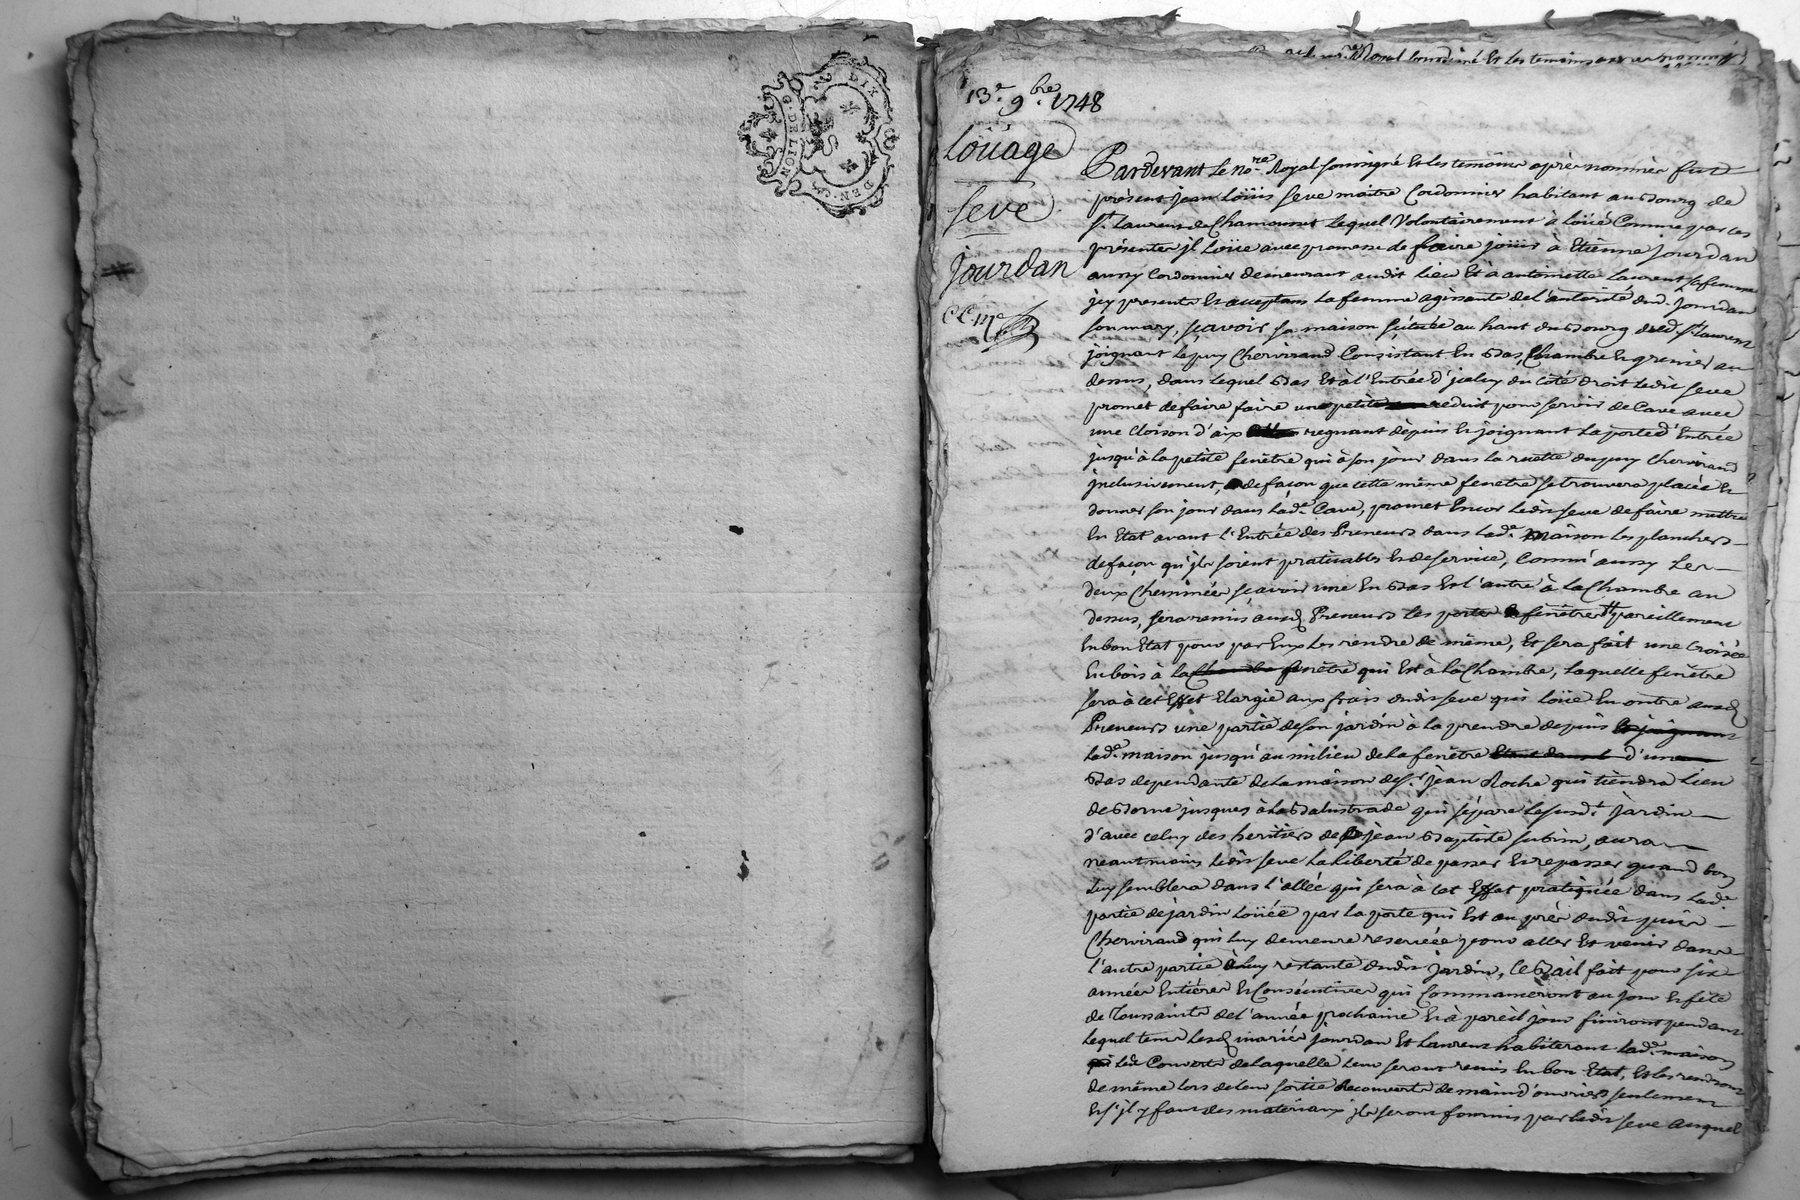 G. DE LION
DIX DEN.
13e 9bre 1748
Loüage
Seve
Jourdan
Pardevant le nore Royal soussigné et les temoins après nommés fut
présent jean Loüis Seve maitre Cordonnier habitant au Bourg de
St. Laurent de Chamousset lequel Volontairement à Loüé Comme par ces
présentes jl Loüe avec promesse de faire joüir à Etienne Jourdan
aussy Cordonnier demeurant audit lieu Et à antoinette Laurent sa femme
jcy presents Et acceptans la femme agissante de l'autorité dud. Jourdan
son mary, sçavoir sa maison scituée au haut du Bourg dud. St Laurent
joignant le puy Chervirand Consistant En Bas, Chambre Et grenier au
dessus, dans lequel Bas Et à l'Entrée d'jceluy du coté droit ledit Seve
promet de faire faire une petite reduit pour servir de Cave avec
une cloison d'aix regnant dépuis Et joignant la porte d'Entrée
jusqu'à la petite fenêtre qui à son jour dans la ruette du puy Chervirand
jnclusivement, de façon que cette même fenetre se trouvera placée Et
donner son jour dans lade. Cave, promet Encor ledit Seve de faire mettre
En Etat avant l'Entrée des Preneurs dans lade. maison les planchers
de façon qu'jls soient pratiquables Et de service, Comm'aussy les
deux Cheminées sçavoir une En Bas Et l'autre à la Chambre au
dessus, sera remis ausd. Preneurs les portes Et fenêtres pareillement
En bon Etat pour par Eux les rendre de même, Et sera fait une Croisée
En bois à la fenêtre qui Est à la Chambre, laquelle fenêtre
sera à cet Effet Elargie aux frais dudit Seve qui loüe En outre ausd.
Preneurs une partie de son jardin à la prendre depuis
lade. maison jusqu'au milieu de la fenêtre d'un
Bas dependante de la maison de Sr. jean Roche qui tiendra lieu
de Borne jusques à la Balustrade qui sépare le susdt. jardin
d'avec celuy des heritiers de jean Baptiste Subrin, aura
neantmoins ledit Seve la liberté de passer Et repasser quand bon
luy semblera dans l'allée qui sera à cet Effet pratiquée dans lade.
partie de jardin Loüée par la porte qui Est au près dudit puis
Chervirand qui luy demeure reservée pour aller Et venir dans
l'autre partie à luy restante dudit jardin, le Bail fait pour six
années Entières Et Consécutives qui Commanceront au jour Et fête
de Toussaints de l'année prochaine Et à pareil jour finiront pendant
lequel tems lesd. mariés Jourdan Et Laurent habiteront lade. maison
les Couverts de laquelle leur seront remis En bon Etat, Et les rendront
de même lors de leur sortie recouverts de main d'ouvriers seulement
Et s'jl y faut des materiaux jls seront fournis par ledit Seve auquel